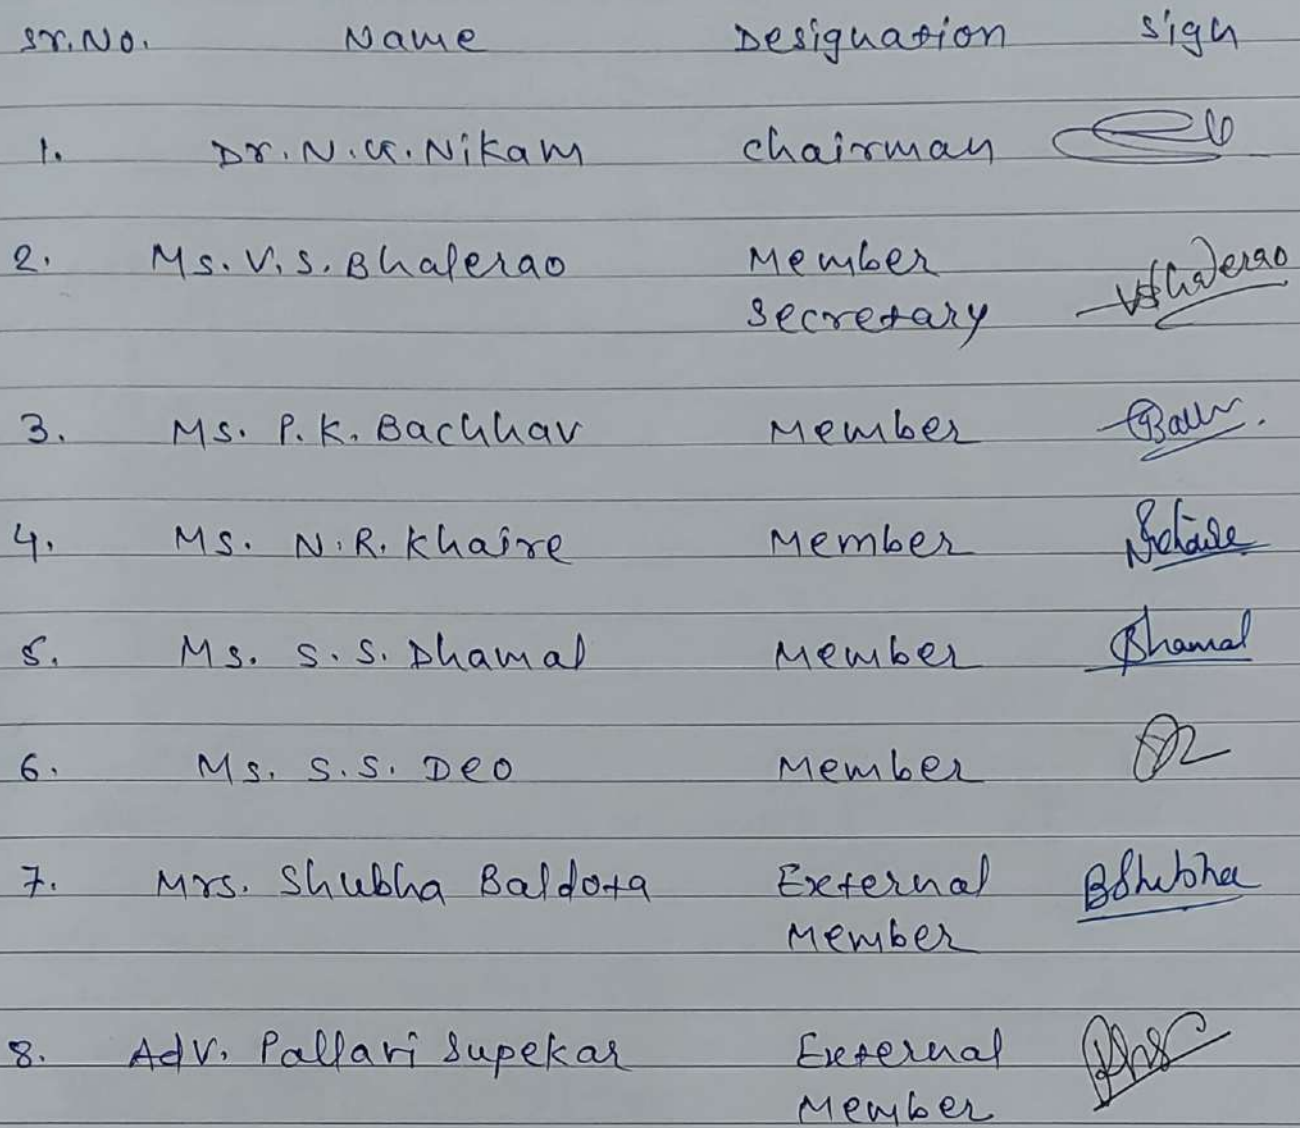 Sr.No. Name Designation Sign
1. Dr. N.U. Nikam Chairman
2. Ms. V.S. Bhalerao Member
Secretary VSBhalerao
3. Ms. P.K. Bachhav Member
4. Ms. N.R. Khaire Member
5. Ms. S.S. Dhamal Member Dhamal
6. Ms. S.S. Deo Member
7. Mrs. Shubha Baldota External BShubha
Member
8. Adv. Pallavi Supekar External
Member